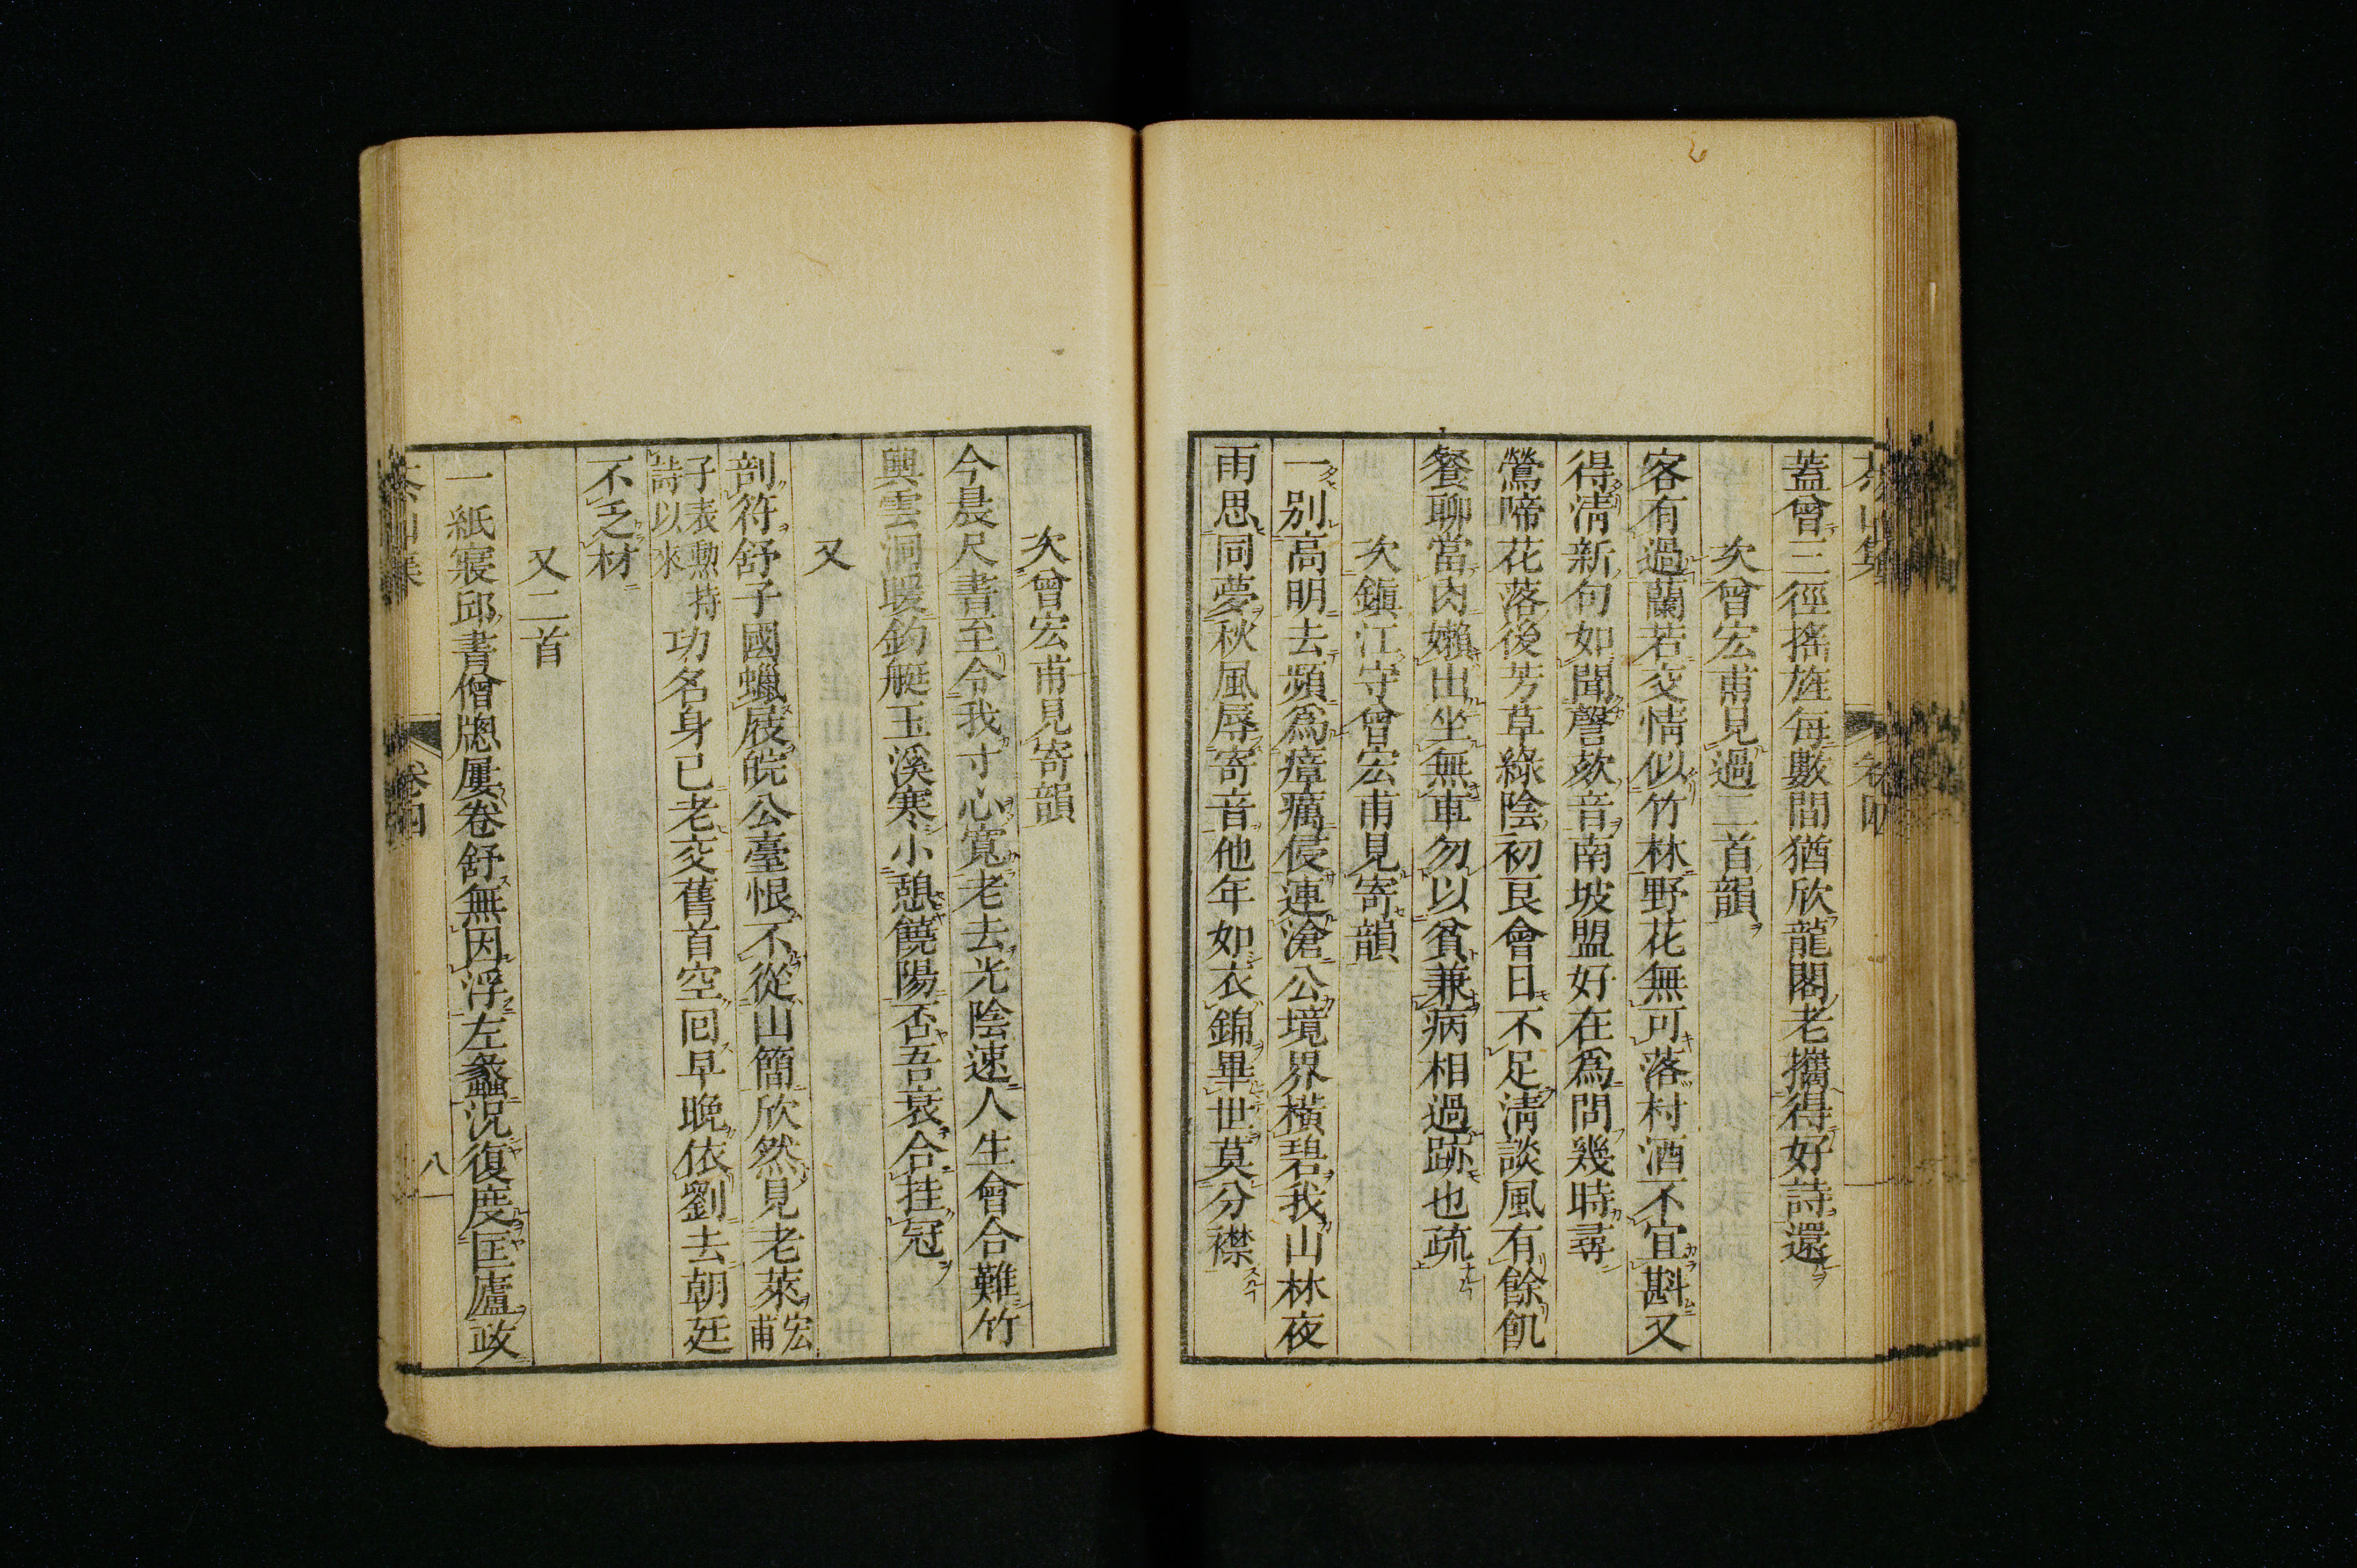 茶山集 卷四
蓋曾三徑搖旌每數間猶欣龍閣老攜得好詩還
次曾宏甫見過二首韻
客有過蘭若交情似竹林野花無可落村酒不宜斟又
得淸新句如聞謦欬音南坡盟好在爲問幾時尋
鶯啼花落後芳草綠陰初艮會日不足淸談風有餘飢
餐聊當肉嬾出坐無車勿以貧兼病相過跡也疏
次鎭江守曾宏甫見寄韻
一别高明去頻爲瘴癘侵連滄公境界橫碧我山林夜
雨思同夢秋風辱寄音他年如衣錦畢世莫分襟
次曾宏甫見寄韻
今晨尺書至令我寸心寬老去光陰速人生會合難竹
輿雲洞暖釣艇玉溪寒小憩饒陽否吾衰合挂冠
又
剖符舒子國蠟屐皖公臺恨不從山簡欣然見老萊宏甫
子表勲持詩以來功名身已老交舊首空囘早晚依劉去朝廷
不乏材
又二首
一紙寢邱書僧牕屢卷舒無因浮左蠡況復度匡廬政
茶山集 卷四 八